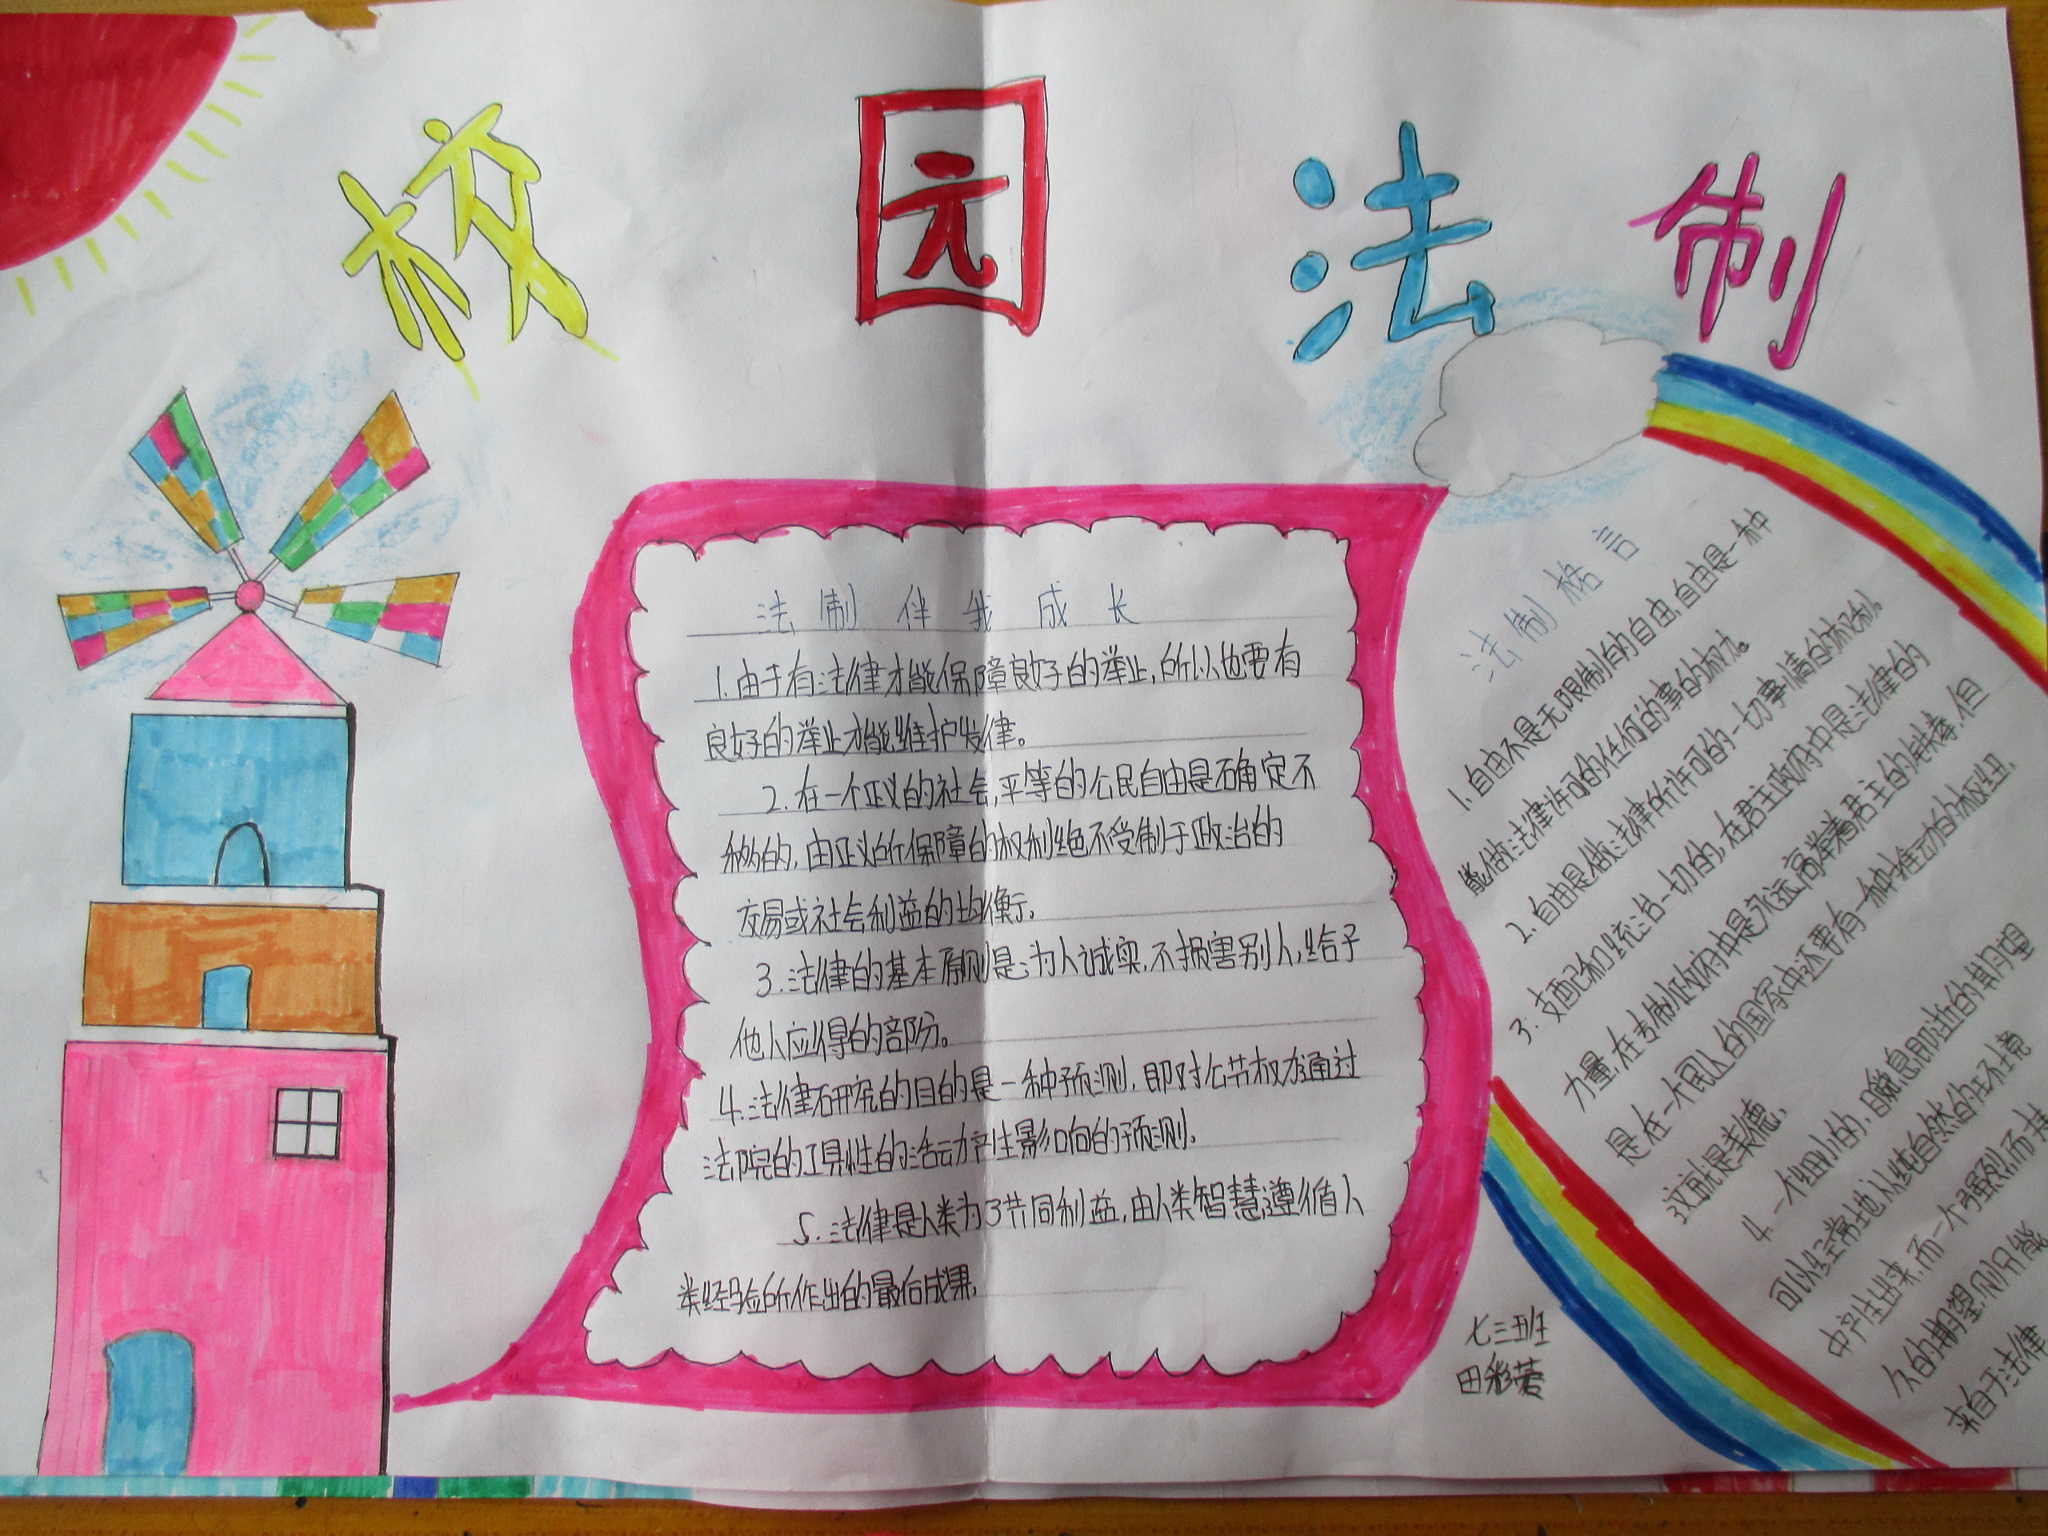 校园法制
法制伴我成长
1.由于有法律才能保障良好的举止,所以也要有
良好的举止才能维护发律。
2.在一个正义的社会,平等的公民自由是确定不
移的,由正义所保障的权利绝不受制于政治的
交易或社会利益的均衡。
3.法律的基本原则是:为人诚实,不损害别人,给予
他人应得的部份。
4.法律研究的目的是一种预测,即对公共权力通过
法院的工具性的活动产生影响的预测。
5.法律是人类为了共同利益,由人类智慧遵循人
类经验所作出的最后成果,
法制格言
1.自由不是无限制的自由,自由是一种
能做法律许可的任何的事的权力。
2.自由是做法律所许可的一切事情的权利。
3.支配和统治一切的,在君主政府中是法律的
力量,在专制政府中是永远高举着君主的铁拳,但
是在一个人民的国家中还要有一种推动的枢纽,
这就是美德,
4.一个细小的,瞬息即逝的期望
可以经常地从纯自然的环境
中产生出来,而一个强烈而持
久的期望,则只能
来自于法律
七三班
田彩